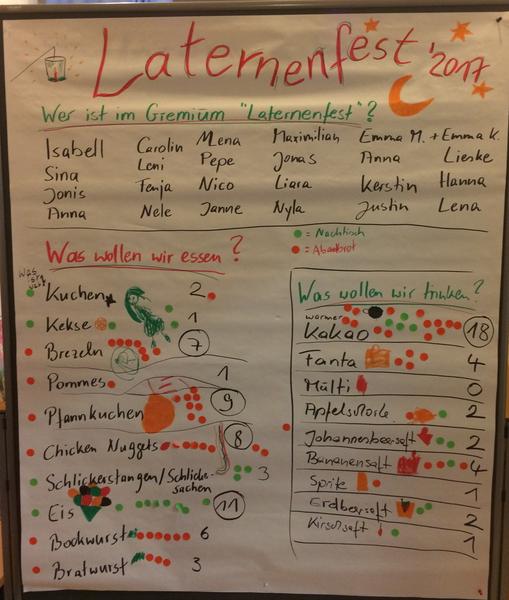 Laternenfest '2017
Wer ist im Gremium "Laternenfest"?
Isabell Carolin Mena Maximilian Emma M. + Emma K.
Sina Leni Pepe Jonas Anna Lieske
Jonis Fenja Nico Liara Kerstin Hanna
Anna Nele Janne Nyla Justin Lena
= Nachtisch
= Abendbrot
Was wollen wir essen?
Kuchen 2
Kekse 1
Brezeln 7
Pommes 1
Pfannkuchen 9
Chicken Nuggets 8
Schlickerstangen/Schlicker-
sachen 3
Eis 11
Bockwurst 6
Bratwurst 3
Was wollen wir trinken?
warmer
Kakao 18
Fanta 4
Multi 0
Apfelschorle 2
Johannenbeersaft 2
Bananensaft 4
Sprite 1
Erdbeersaft 2
Kirschsaft 1